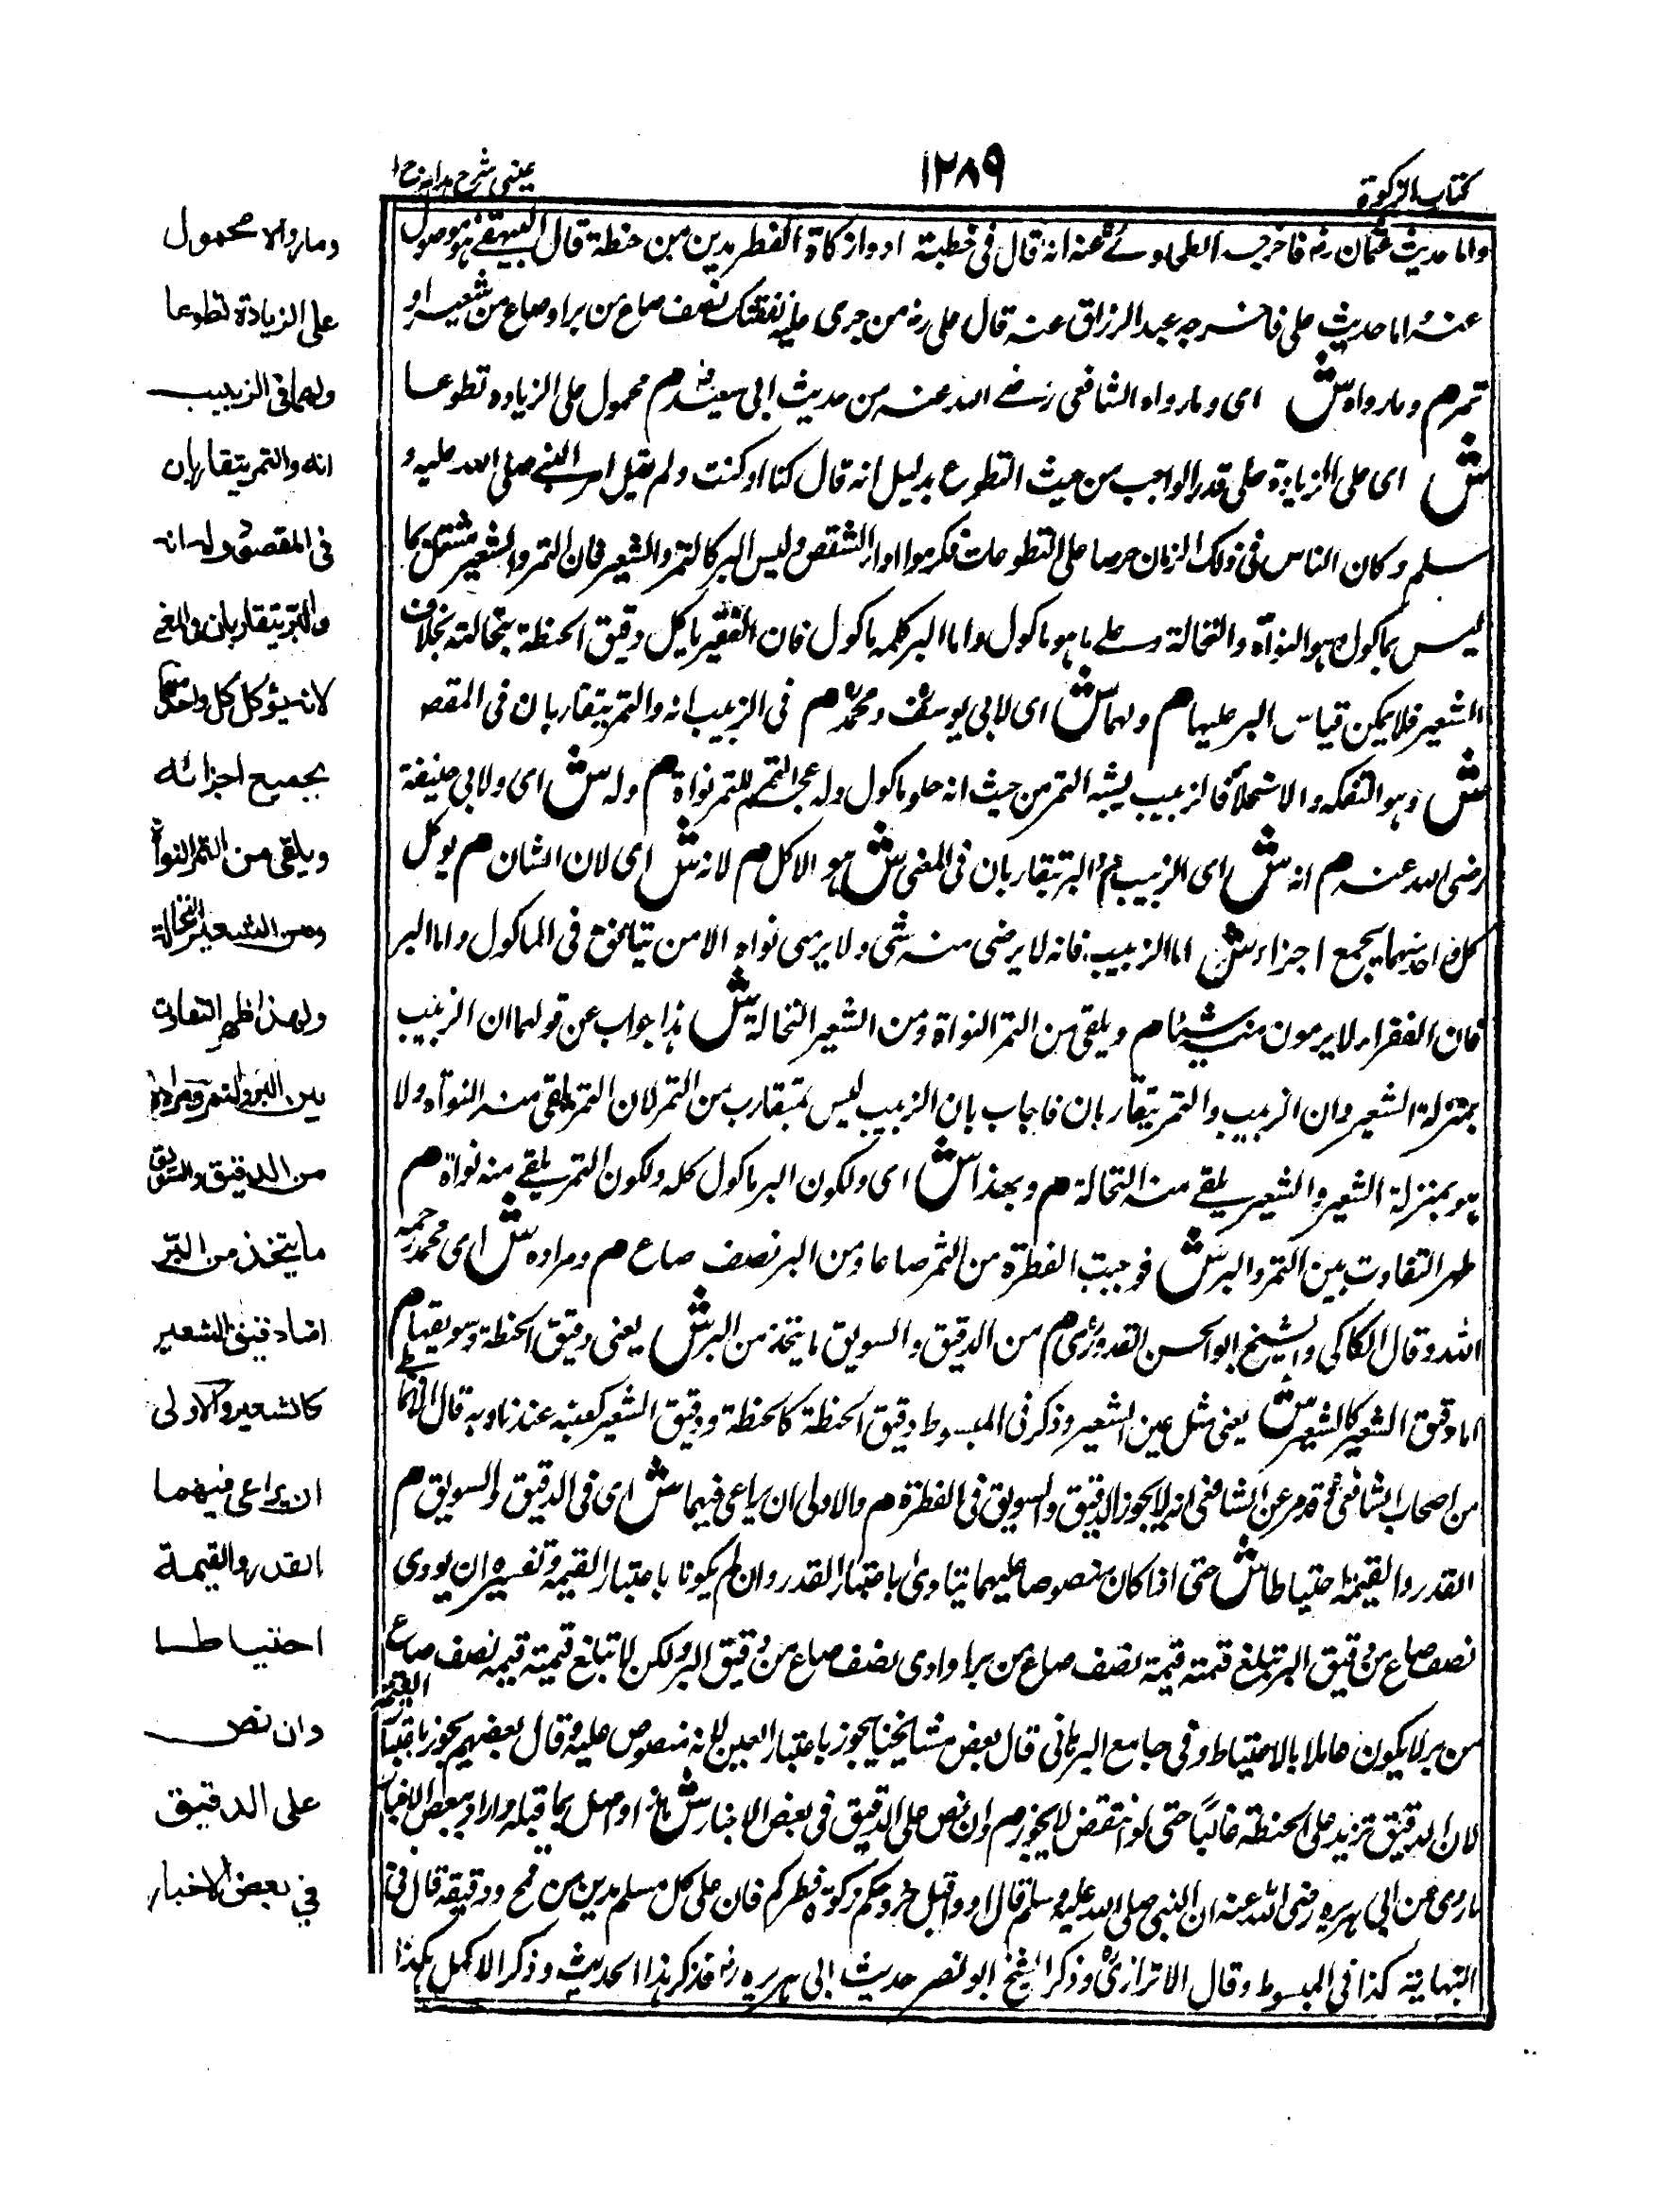 كتاب الزكوة
١٢٨٩
عينى شرح هدايه ج ا
واما حديث عثمان رض فاخرجه الطحاوى عنه انه قال فى خطبته ادوا زكاة الفطر مدين من حنطة قال البيهقى هو موصول
عنه واما حديث على فاخرجه عبد الرزاق عنه قال على رض من جرى عليه نفقتك نصف صاع من بر او صاع من شعير او
تمر م وما رواه ش اى وما رواه الشافعى رضى الله عنه من حديث ابى سعيد م محمول على الزيادة تطوعا
ش اى على الزيادة على قدر الواجب من حيث التطوع بدليل انه قال كنا او كنت ولم يقل امر النبى صلى الله عليه و
سلم وكان الناس فى ذلك الزمان حرصا على التطوعات فكرهوا اداء الشقص وليس البر كالتمر والشعير فان التمر والشعير مشتمل بما
ليس بماكول هو النواة والنخالة وعلى ما هو ماكول واما البر كله ماكول فان الفقير ياكل دقيق الحنطة بنخالته بخلاف
الشعير فلا يمكن قياس البر عليها م ولهما ش اى لابى يوسف ومحمد م فى الزبيب انه والتمر يتقاربان فى المقصد
ش وهو التفكه والاستحلاء فالزبيب يشبه التمر من حيث انه حلو ماكول وله عجم كما للتمر نواة م وله ش اى ولابى حنيفة
رضى الله عنه م انه ش اى الزبيب م والبر يتقاربان فى المعنى ش هو الاكل م لانه ش اى لان الشان م يوكل
كل واحد منهما بجميع اجزاءه ش اما الزبيب فانه لا يرمى منه شى ولا يرمى نواه الا من يتانق فى الماكول واما البر
فان الفقراء لا يرمون منه شيئا م ويلقى من التمر النواة ومن الشعير النخالة ش هذا جواب عن قولهما ان الزبيب
بمنزلة الشعير وان الزبيب والتمر يتقاربان فاجاب بان الزبيب ليس بمتقارب من التمر لان التمر يلقى منه النواة ولا
هو بمنزلة الشعير والشعير يلقى منه النخالة م وبهذا ش اى ولكون البر ماكول كله ولكون التمر يلقى منه نواة م
ظهر التفاوت بين التمر والبر ش فوجبت الفطرة من التمر صاعا ومن البر نصف صاع م ومراده ش اى محمد رحمه
الله وقال الكاكى والشيخ ابو الحسن القدورى م من الدقيق والسويق ما يتخذ من البر ش يعنى دقيق الحنطة وسويقها م
اما دقيق الشعير كالشعير ش يعنى مثل عين الشعير وذكر فى المبسوط دقيق الحنطة كالحنطة ودقيق الشعير كعينه عندنا وبه قال الانماطى
من اصحاب الشافعى وقد مر عن الشافعى انه لا يجوز الدقيق والسويق فى الفطرة م والاولى ان يراعى فيهما ش اى فى الدقيق والسويق م
القدر والقيمة احتياطا ش حتى اذا كان منصوصا عليهما يتاوى باعتبار القدر وان لم يكونا باعتبار القيمة وتفسيره ان يودى
نصف صاع من دقيق البر تبلغ قيمته قيمة نصف صاع من بر او ادى نصف صاع من دقيق البر ولكن لا تبلغ قيمته قيمة نصف صاع
من بر لا يكون عاملا بالاحتياط وفى جامع البرهانى قال بعض مشايخنا يجوز باعتبار العين لانه منصوص عليه وقال بعضهم يجوز باعتبار القيمة
لان الدقيق تزيد على الحنطة غالبا حتى لو انتقض لا يجوز م وان نص على الدقيق فى بعض الاخبار ش هذا واصل بما قبله واراد ببعض الاخبار
ما روى عن ابى هريره رضى الله عنه ان النبى صلى الله عليه وسلم قال ادوا قبل خروجكم زكوة فطركم فان على كل مسلم مدين من قمح ودقيقه قال فى
النهاية كذا فى المبسوط وقال الاترازى وذكر الشيخ ابو نصر حديث ابى هريره رض فذكر هذا الحديث وذكر الاكمل هكذا
وما رواه محمول
على الزيادة تطوعا
ولهما فى الزبيب
انه والتمر يتقاربان
فى المقصود وله انه
والبر يتقاربان فى المعنى
لانه يؤكل كل واحد منهما
بجميع اجزائه
ويلقى من التمر النواة
ومن الشعير النخالة
وبهذا ظهر التفاوت
بين البر والتمر ومراده
من الدقيق والسويق
ما يتخذ من البر
اما دقيق الشعير
كالشعير والاولى
ان يراعى فيهما
القدر والقيمة
احتياطا
وان نص
على الدقيق
فى بعض الاخبار